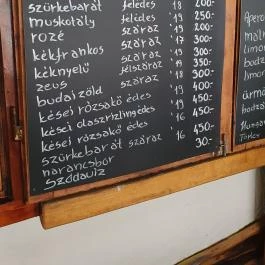 szürkebarát feledes '18 200.-
muskotály félédes '18 250.-
rozé száraz '19 200.-
kékfrankos száraz '17 300.-
kéknyelű száraz '18 300.-
zeus félszáraz '18 350.-
budai zöld száraz '18 400.-
kései rózsakő édes '19 400.-
kései olaszrizling édes '19 450.-
kései rózsakő édes '16 400.-
szürkebarát száraz '16 450.-
narancsbor '16 30.-
szódavíz
Apero
limon
bodza
limon
ármá
bodza
Hungar